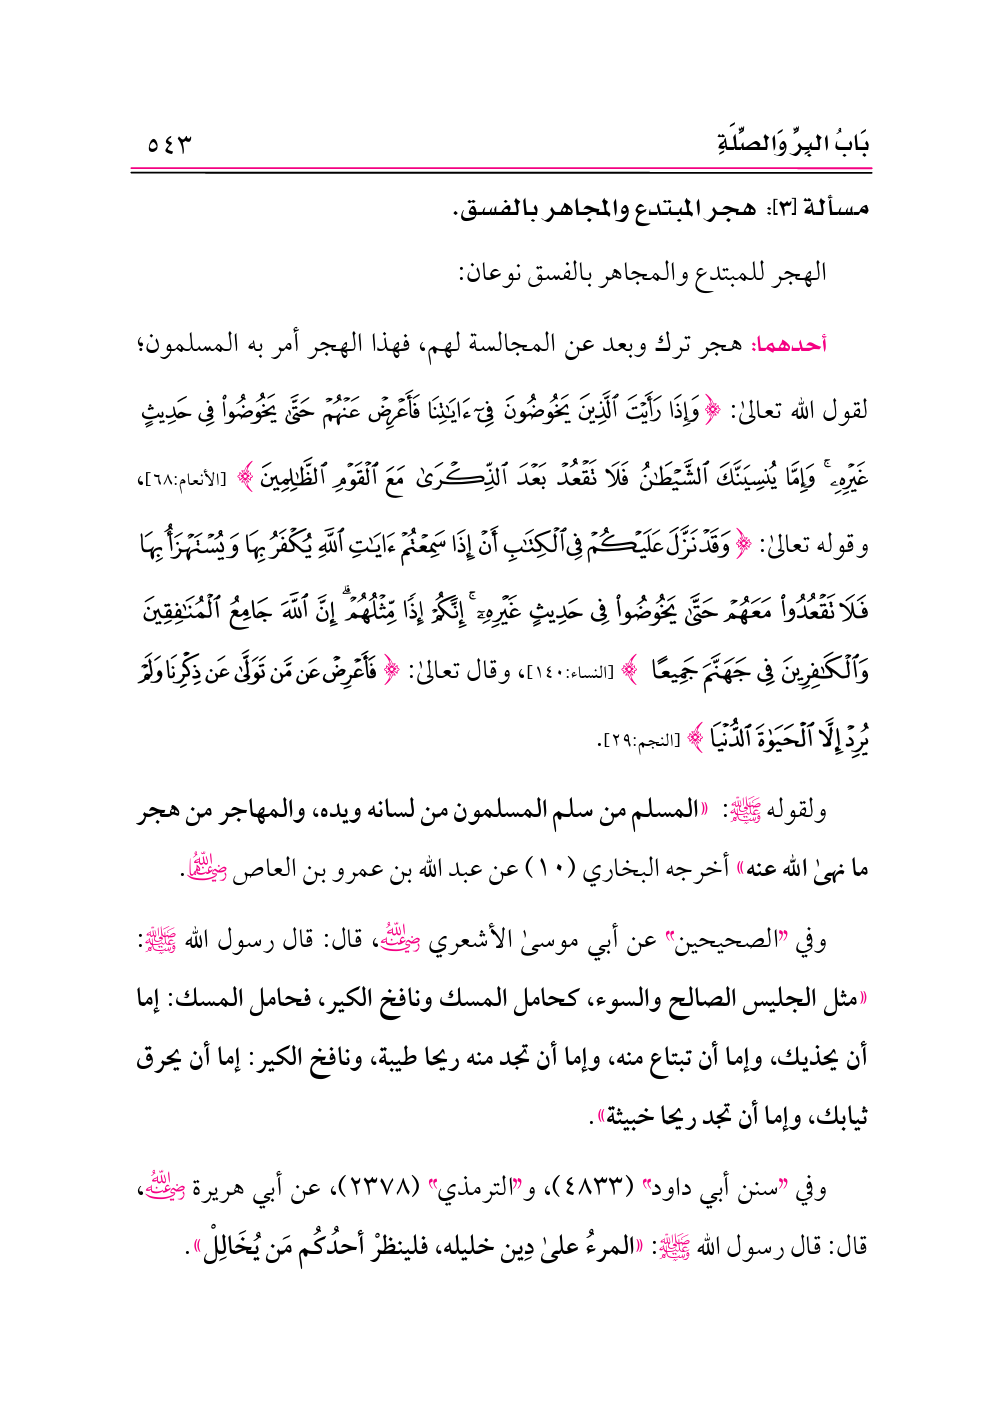 بَابُ البِرِّ وَالصِّلَةِ ٥٤٣
مسألة [٣]: هجر المبتدع والمجاهر بالفسق.
الهجر للمبتدع والمجاهر بالفسق نوعان:
أحدهما: هجر ترك وبعد عن المجالسة لهم، فهذا الهجر أمر به المسلمون؛
لقول الله تعالىٰ: ﴿ وَإِذَا رَأَيْتَ ٱلَّذِينَ يَخُوضُونَ فِىٓ ءَايَٰتِنَا فَأَعْرِضْ عَنْهُمْ حَتَّىٰ يَخُوضُوا۟ فِى حَدِيثٍ
غَيْرِهِۦ ۚ وَإِمَّا يُنسِيَنَّكَ ٱلشَّيْطَٰنُ فَلَا تَقْعُدْ بَعْدَ ٱلذِّكْرَىٰ مَعَ ٱلْقَوْمِ ٱلظَّٰلِمِينَ ﴾ [الأنعام:٦٨]،
وقوله تعالىٰ: ﴿ وَقَدْ نَزَّلَ عَلَيْكُمْ فِى ٱلْكِتَٰبِ أَنْ إِذَا سَمِعْتُمْ ءَايَٰتِ ٱللَّهِ يُكْفَرُ بِهَا وَيُسْتَهْزَأُ بِهَا
فَلَا تَقْعُدُوا۟ مَعَهُمْ حَتَّىٰ يَخُوضُوا۟ فِى حَدِيثٍ غَيْرِهِۦٓ ۚ إِنَّكُمْ إِذًا مِّثْلُهُمْ ۗ إِنَّ ٱللَّهَ جَامِعُ ٱلْمُنَٰفِقِينَ
وَٱلْكَٰفِرِينَ فِى جَهَنَّمَ جَمِيعًا ﴾ [النساء:١٤٠]، وقال تعالىٰ: ﴿ فَأَعْرِضْ عَن مَّن تَوَلَّىٰ عَن ذِكْرِنَا وَلَمْ
يُرِدْ إِلَّا ٱلْحَيَوٰةَ ٱلدُّنْيَا ﴾ [النجم:٢٩].
ولقوله ﷺ: «المسلم من سلم المسلمون من لسانه ويده، والمهاجر من هجر
ما نهىٰ الله عنه» أخرجه البخاري (١٠) عن عبد الله بن عمرو بن العاص رضي الله عنهما.
وفي "الصحيحين" عن أبي موسىٰ الأشعري رضي الله عنه، قال: قال رسول الله ﷺ:
«مثل الجليس الصالح والسوء، كحامل المسك ونافخ الكير، فحامل المسك: إما
أن يحذيك، وإما أن تبتاع منه، وإما أن تجد منه ريحا طيبة، ونافخ الكير: إما أن يحرق
ثيابك، وإما أن تجد ريحا خبيثة».
وفي "سنن أبي داود" (٤٨٣٣)، و"الترمذي" (٢٣٧٨)، عن أبي هريرة رضي الله عنه،
قال: قال رسول الله ﷺ: «المرءُ علىٰ دِين خليله، فلينظرْ أحدُكُم مَن يُخَالِلْ».